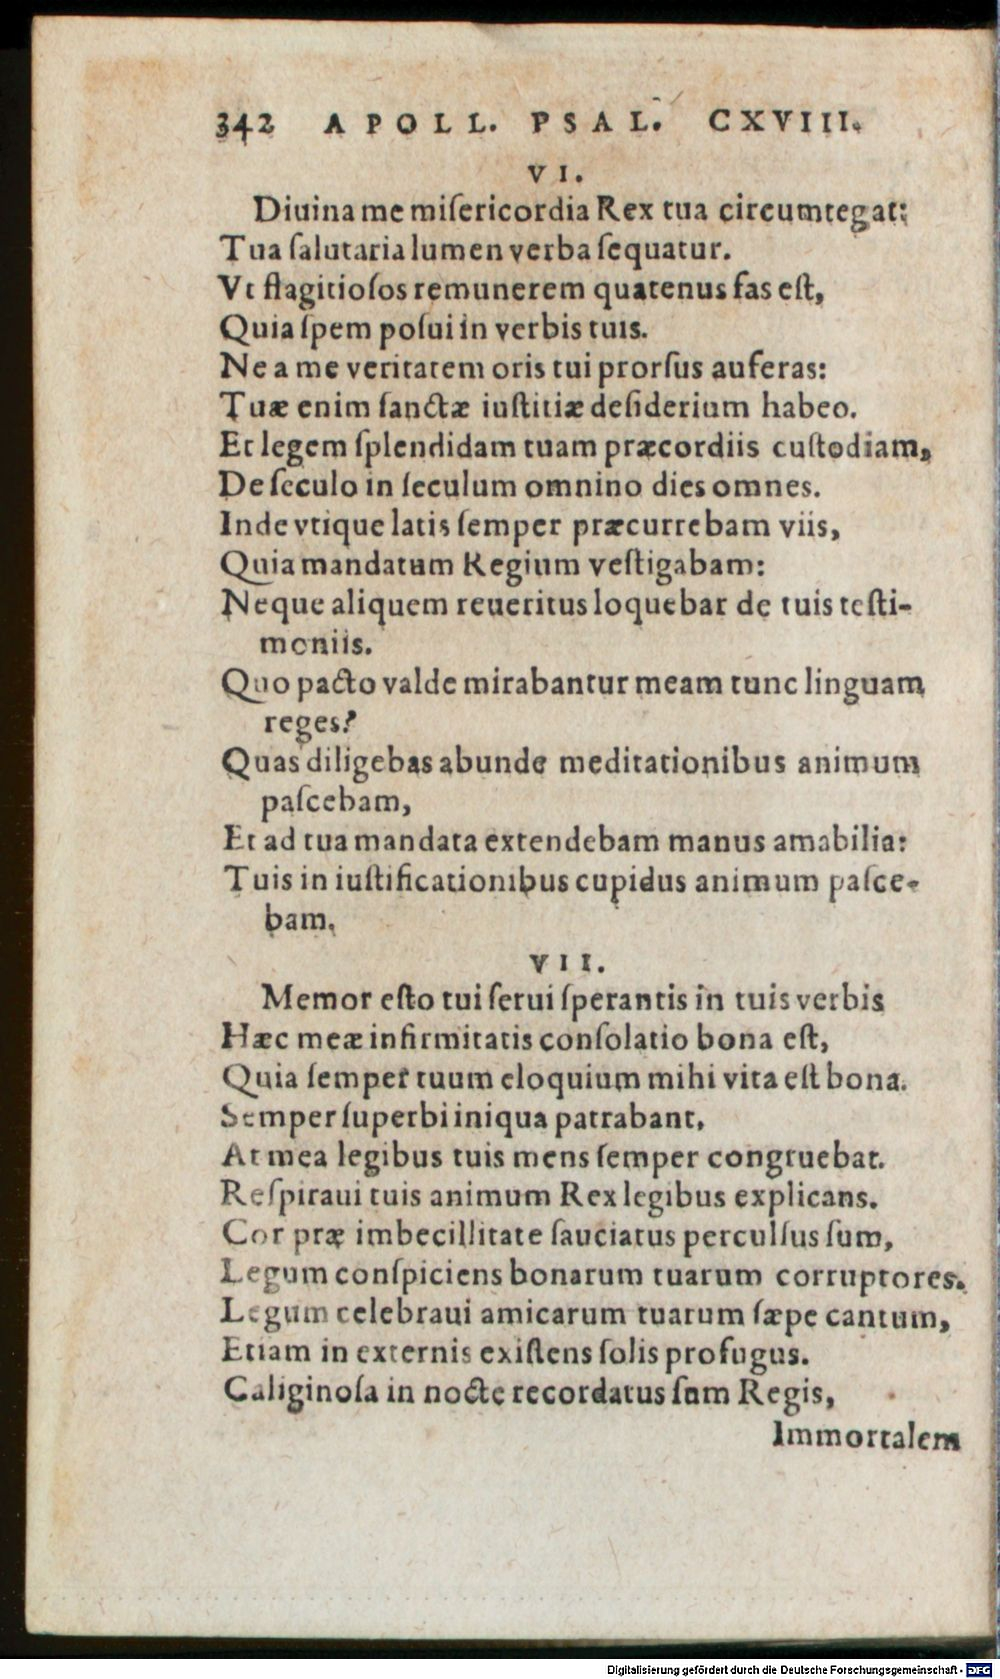 342 APOLL. PSAL. CXVIII.
VI.
Diuina me miſericordia Rex tua circumtegat:
Tua ſalutaria lumen verba ſequatur.
Vt flagitioſos remunerem quatenus fas eſt,
Quia ſpem poſui in verbis tuis.
Ne a me veritatem oris tui prorſus auferas:
Tuæ enim ſanctæ iuſtitiæ deſiderium habeo.
Et legem ſplendidam tuam præcordiis cuſtodiam,
De ſeculo in ſeculum omnino dies omnes.
Inde vtique latis ſemper præcurrebam viis,
Quia mandatum Regium veſtigabam:
Neque aliquem reueritus loquebar de tuis teſti-
moniis.
Quo pacto valde mirabantur meam tunc linguam
reges?
Quas diligebas abunde meditationibus animum
paſcebam,
Et ad tua mandata extendebam manus amabilia:
Tuis in iuſtificationibus cupidus animum paſce-
bam.
VII.
Memor eſto tui ſerui ſperantis in tuis verbis
Hæc meæ infirmitatis conſolatio bona eſt,
Quia ſemper tuum eloquium mihi vita eſt bona.
Semper ſuperbi iniqua patrabant,
At mea legibus tuis mens ſemper congruebat.
Reſpiraui tuis animum Rex legibus explicans.
Cor præ imbecillitate ſauciatus perculſus ſum,
Legum conſpiciens bonarum tuarum corruptores.
Legum celebraui amicarum tuarum ſæpe cantum,
Etiam in externis exiſtens ſolis profugus.
Caliginoſa in nocte recordatus ſum Regis,
Immortalem
Digitalisierung gefördert durch die Deutsche Forschungsgemeinschaft - DFG